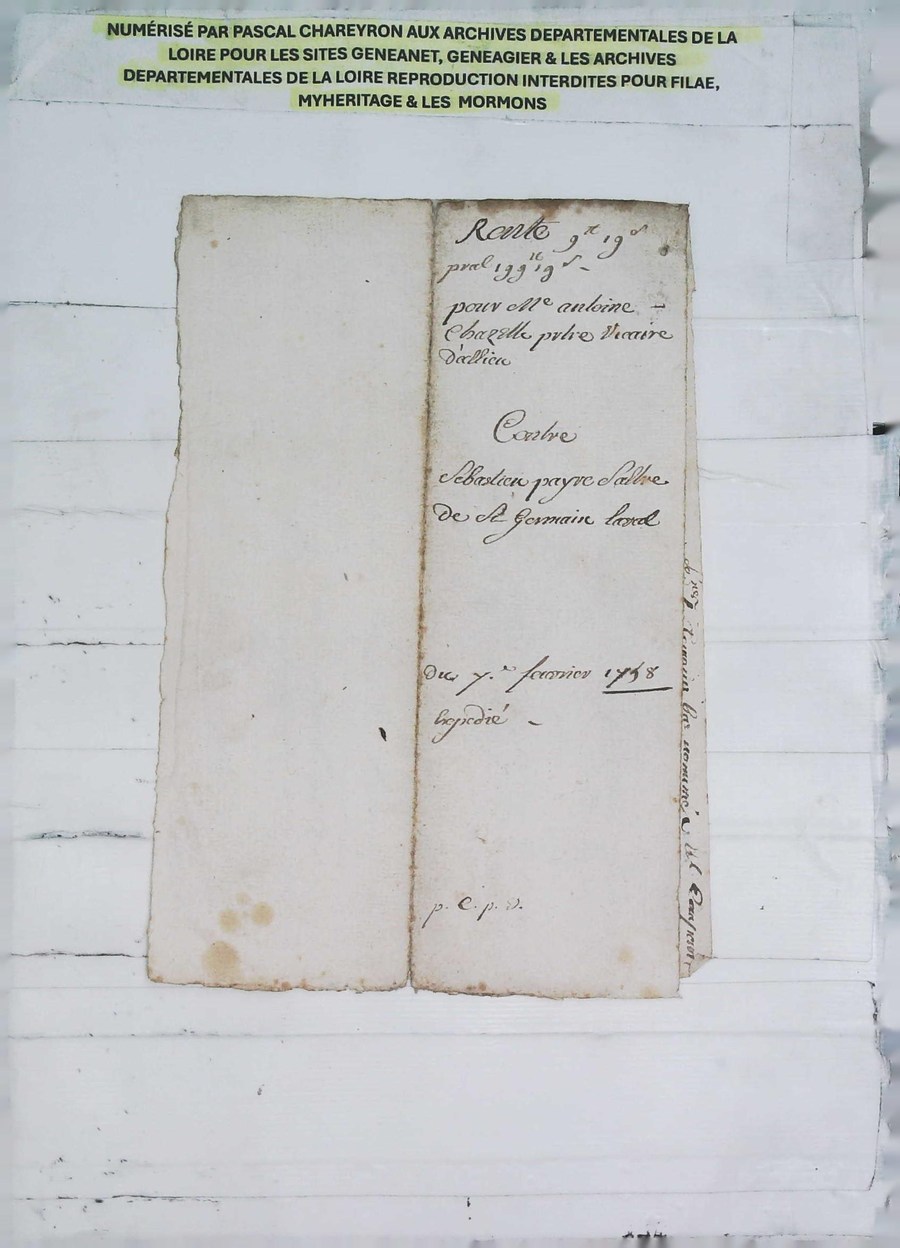 NUMÉRISÉ PAR PASCAL CHAREYRON AUX ARCHIVES DEPARTEMENTALES DE LA
LOIRE POUR LES SITES GENEANET, GENEAGIER & LES ARCHIVES
DEPARTEMENTALES DE LA LOIRE REPRODUCTION INTERDITES POUR FILAE,
MYHERITAGE & LES MORMONS
Rente 9tt 19s
pral 199tt 19s -
pour Me antoine -
Chazelle prtre Vicaire
d'allieu
Contre
Sebastien payre
De St Germain laval
Du 7e feuvrier 1758
Expedié -
p. C. p. D.